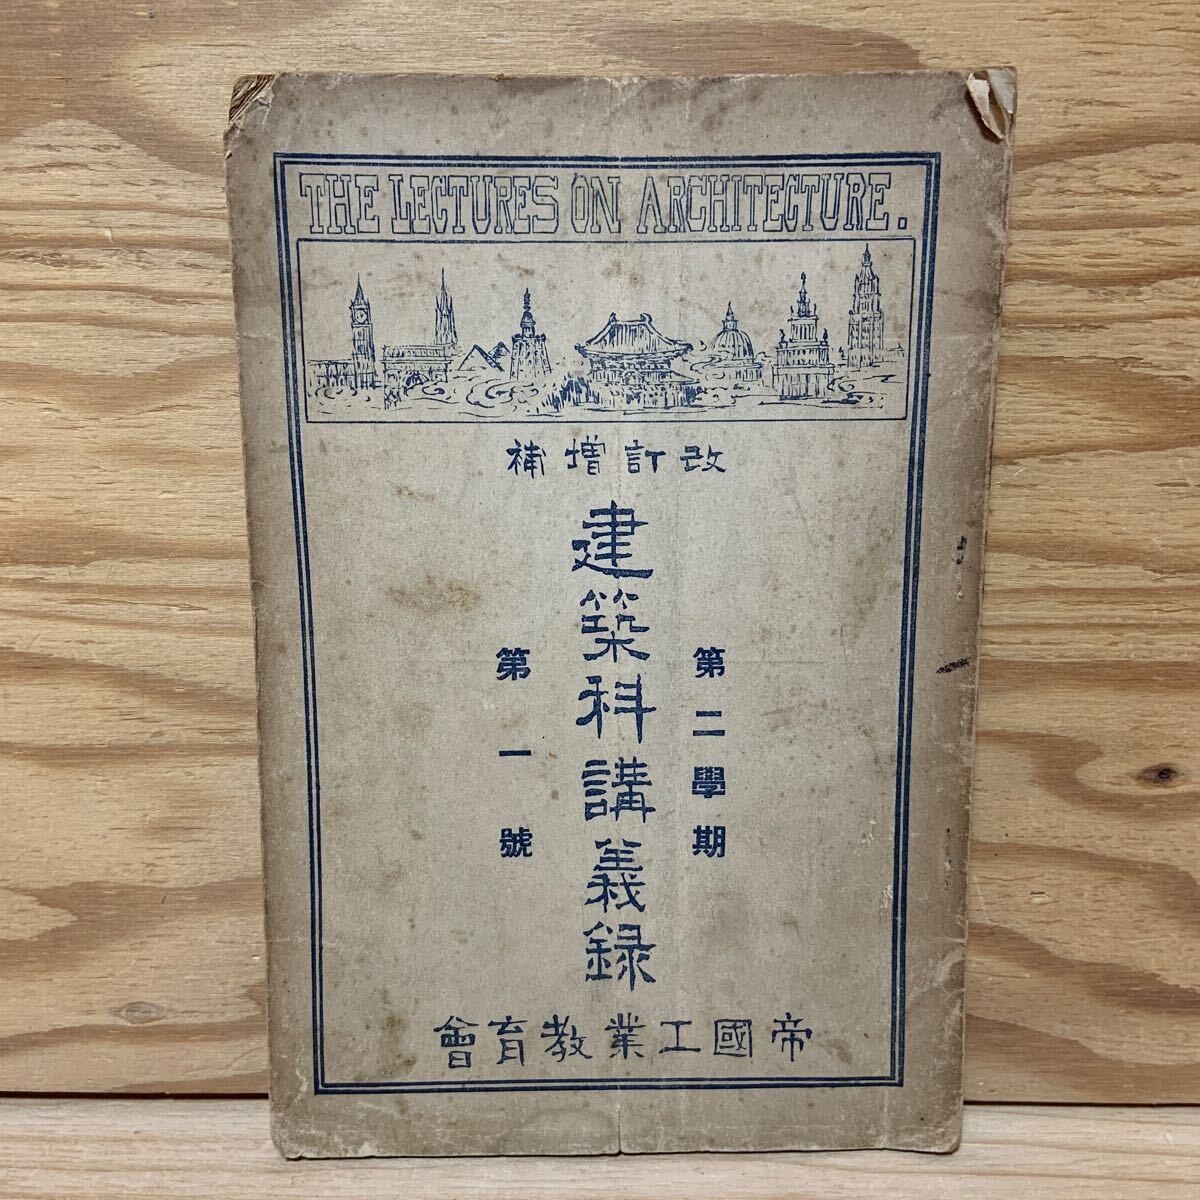 THE LECTURES ON ARCHITECTURE.
改訂増補
第二學期
建築科講義録
第一號
帝國工業教育會